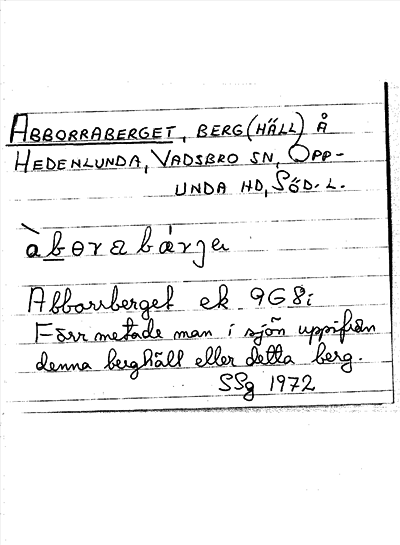 ABBORRABERGET, BERG (HÄLL) Å
HEDENLUNDA, VADSBRO SN, OPP-
UNDA HD, SÖD. L.
àbɵrabárjeɩ
Abborrberget ek 9G8i
Förr metade man i sjön uppifrån
denna berghäll eller detta berg.
SSg 1972